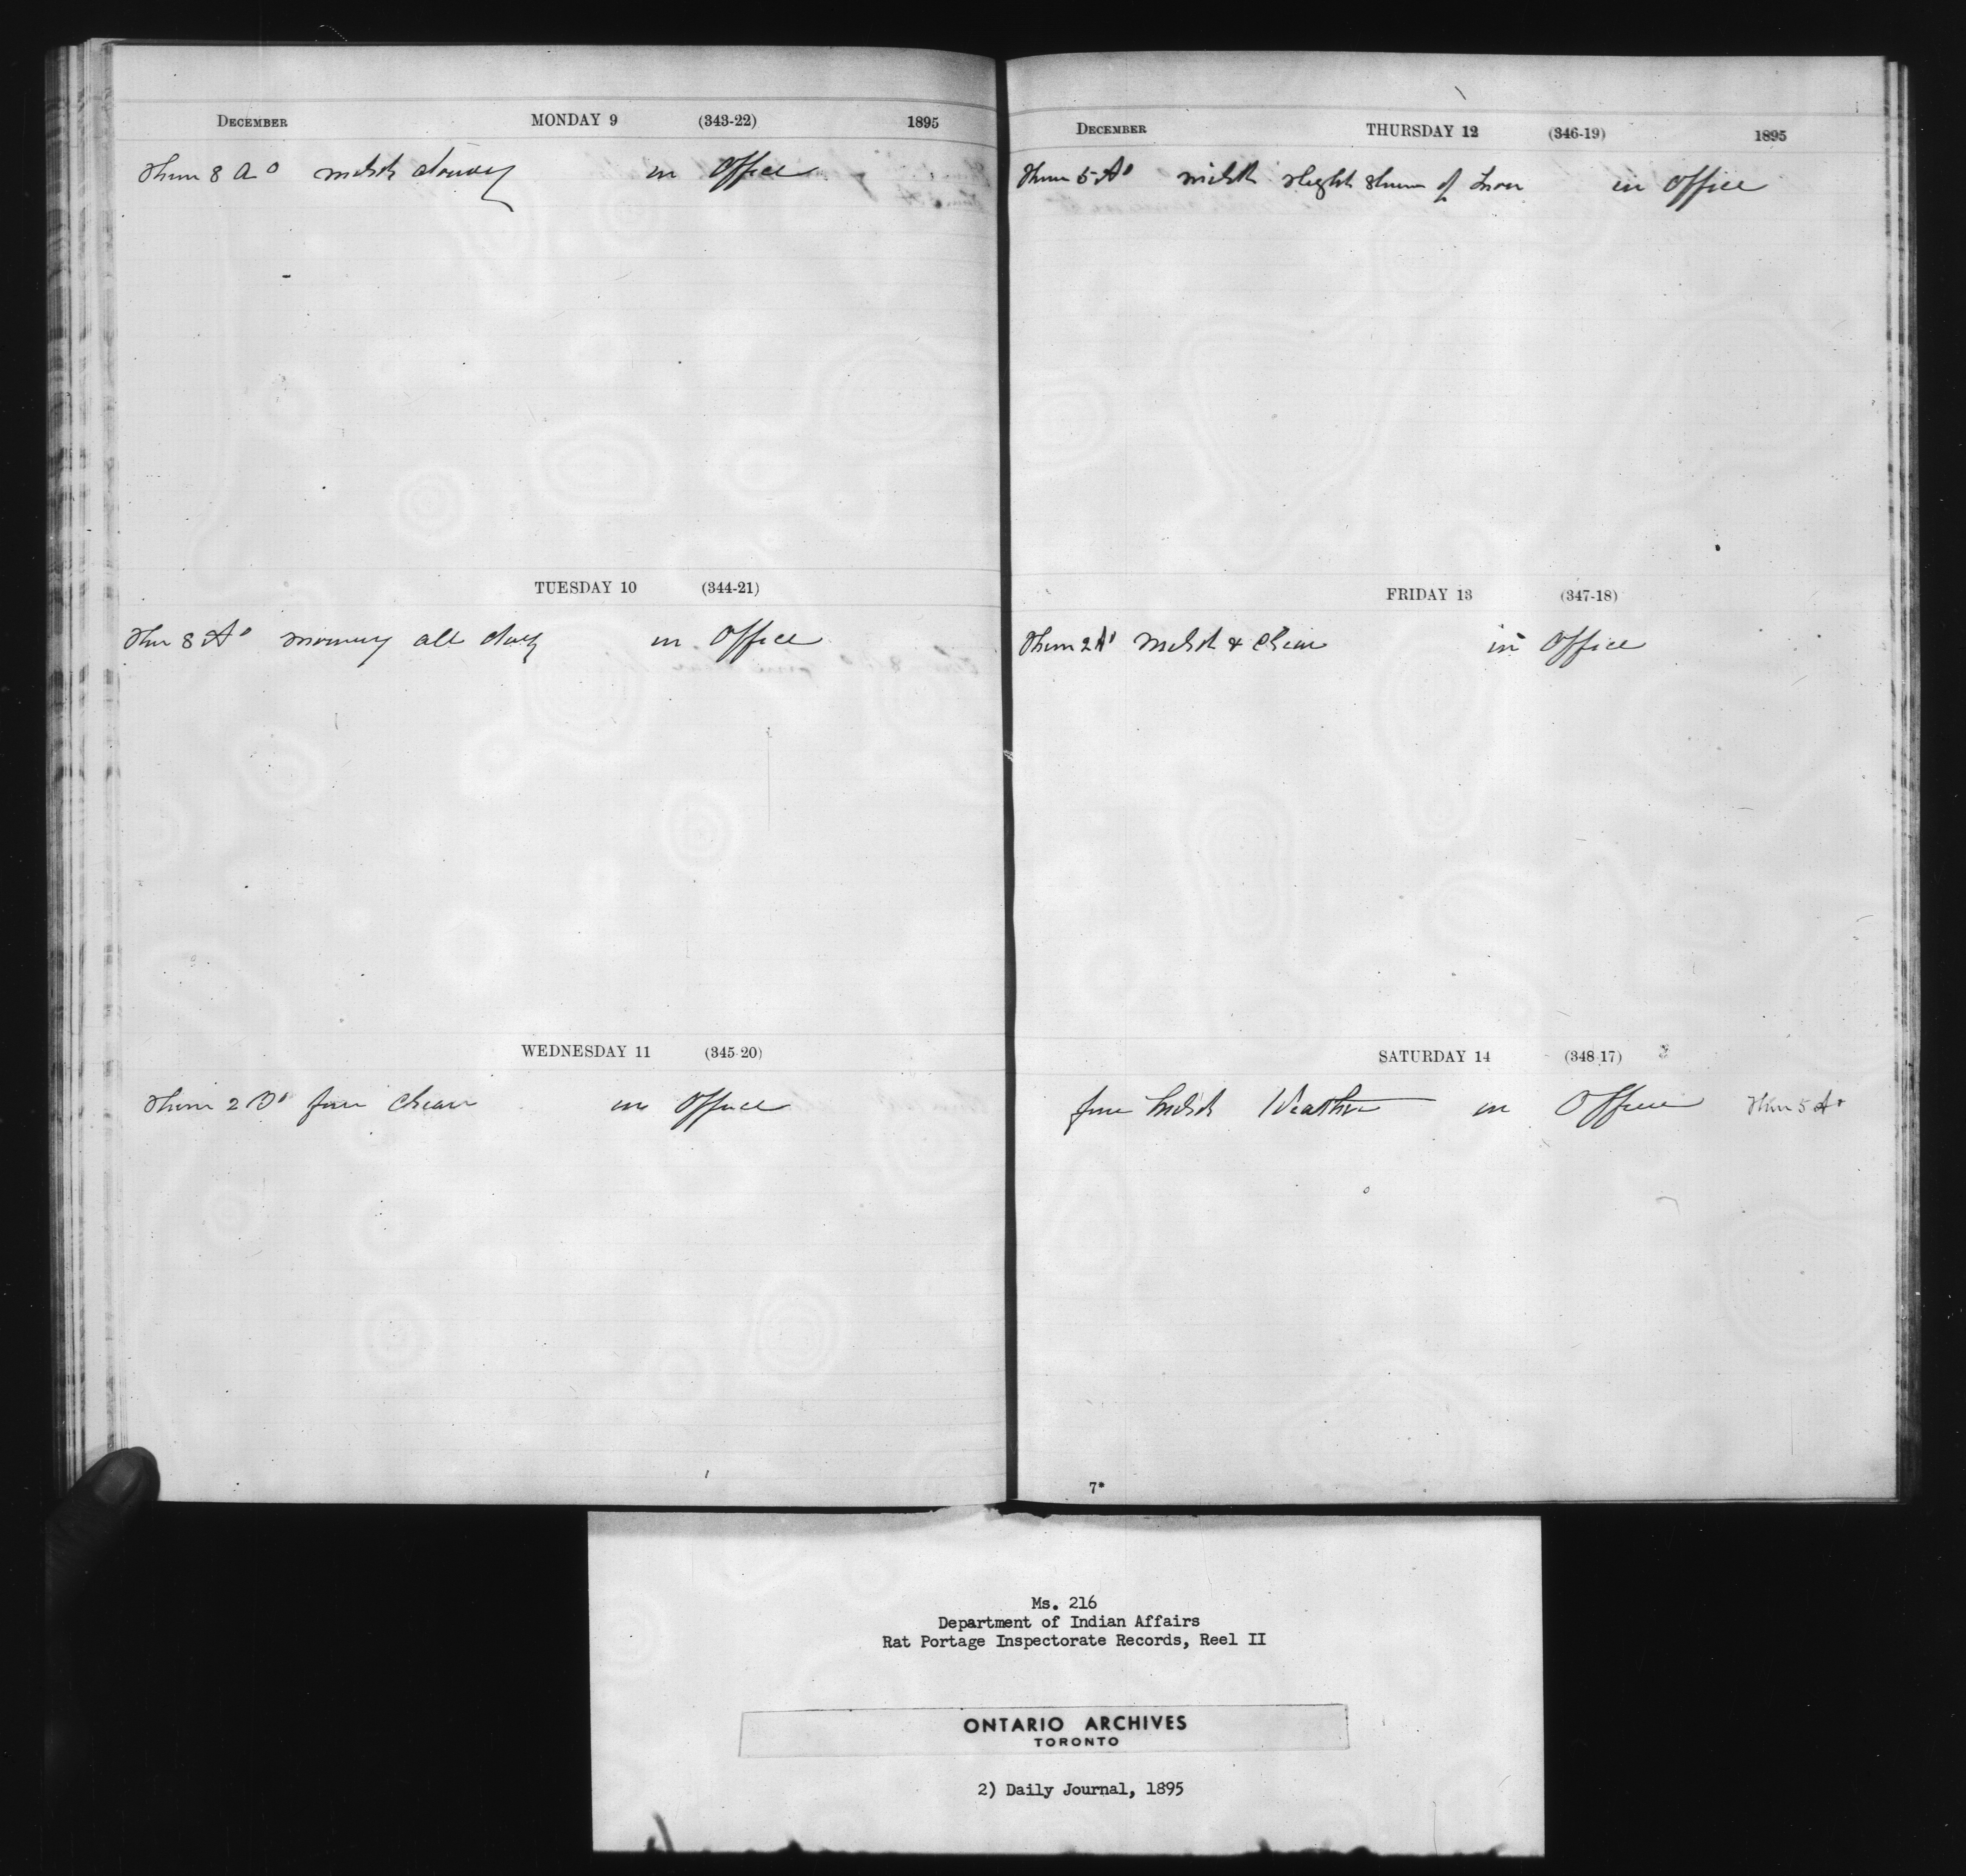 DECEMBER MONDAY 9 (343-22) 1895
Ther 8 A 0 mild cloudy in Office
TUESDAY 10 (344-21)
Ther 8 A 0 snowing all day in Office
WEDNESDAY 11 (345-20)
Ther 2 B 0 fine clear in Office
DECEMBER THURSDAY 12 (346-19) 1895
Ther 5 A 0 mild slight of snow in Office
FRIDAY 13 (347-18)
Ther 2 A 0 mild & clear in Office
SATURDAY 14 (348-17)
fine mild Weather in Office Ther 5 A 0
7*
Ms. 216
Department of Indian Affairs
Rat Portage Inspectorate Records, Reel II
ONTARIO ARCHIVES
TORONTO
2) Daily Journal, 1895